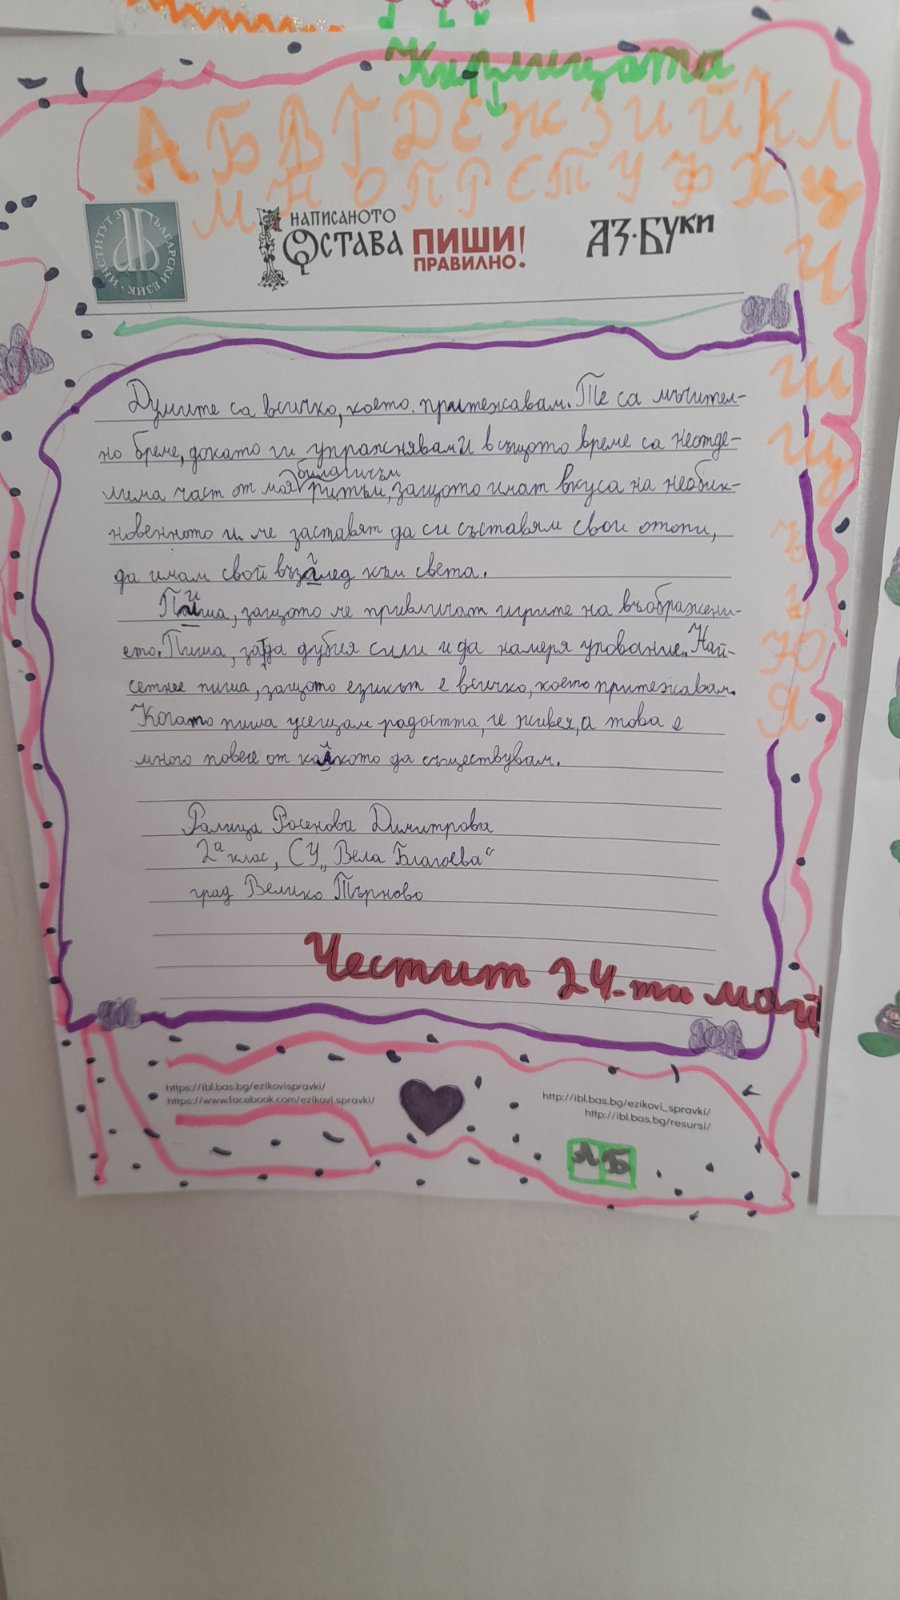 Кирлицата
А Б В Г Д Е Ж З И Й К Л
М Н О П Р С Т У Ф Х Ц
Ч
Ш
Щ
Ъ
ь
Ю
Я
ИНСТИТУТ ЗА БЪЛГАРСКИ ЕЗИК
НАПИСАНОТО
ОСТАВА ПИШИ!
ПРАВИЛНО.
АЗ·БУКИ
Думите са всичко, което притежавам. Те са мъчител-
но бреме, докато ги упражнявам и в същото време са неотде-
лима част от моя билогичъм
ритъм, защото имат вкуса на необик-
новенното и ме заставят да си съставям свои опоти,
да имам свой възглед към света.
Пиша, защото ме привличат игрите на въображени-
ето. Пиша, за да дубия сили и да намеря упование. Най-
сетнее пиша, защото езикът е всичко, което притежавам.
Когато пиша усещам радостта, че живея, а това е
много повече от колкото да съществувам.
Ралица Росенова Димитрова
2а клас, СУ „Вела Благоева“
град Велико Търново
Честит 24-ти май!
https://ibl.bas.bg/ezikovispravki/
https://www.facebook.com/ezikovi.spravki/
http://ibl.bas.bg/ezikovi_spravki/
http://ibl.bas.bg/resursi/
А Б